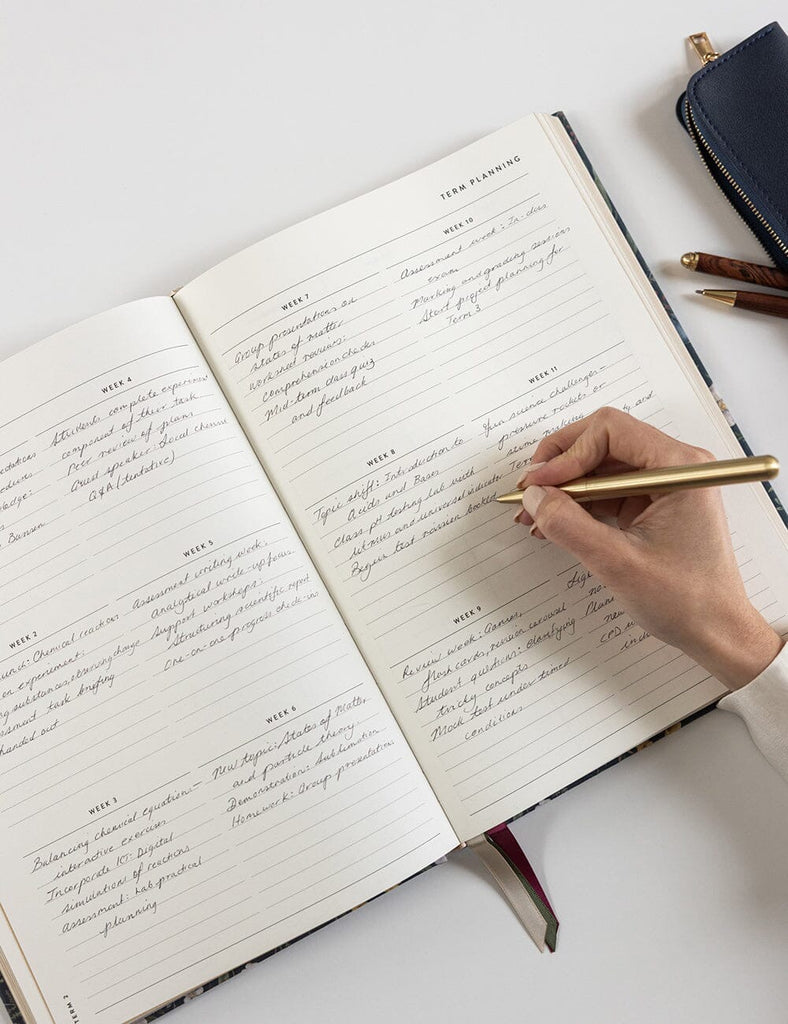 WEEK 4
Students complete experiment
component of their task
Peer review of plans
Guest speaker: Local chemist
Q&A (tentative)
Bunsen
WEEK 2
Chemical reactions
experiment:
substances, observing change
task briefing
handed out
WEEK 5
Assessment writing week:
Analytical write-up focus
Support workshops:
Structuring scientific report
One-on-one progress check-ins
WEEK 3
Balancing chemical equations –
interactive exercises
Incorporate ICT: Digital
simulations of reactions
Assessment: Lab practical
planning
WEEK 6
New topic: States of Matter
and particle theory
Demonstration: Sublimation
Homework: Group presentation
TERM 2
TERM PLANNING
WEEK 7
Group presentations on
states of matter
Worksheet reviews:
comprehension checks
Mid-term class quiz
and feedback
WEEK 10
Assessment week: In-class
exam
Marking and grading sessions
Start project planning for
Term 3
WEEK 8
Topic shift: Introduction to
Acids and Bases
Class pH testing lab with
litmus and universal indicator
Begin test revision booklet
WEEK 11
Fun science challenges –
pressure rockets or
slime making
and
WEEK 9
Review week: Games,
flash cards, revision carousel
Student questions: clarifying
tricky concepts
Mock test under timed
conditions
new
CPD